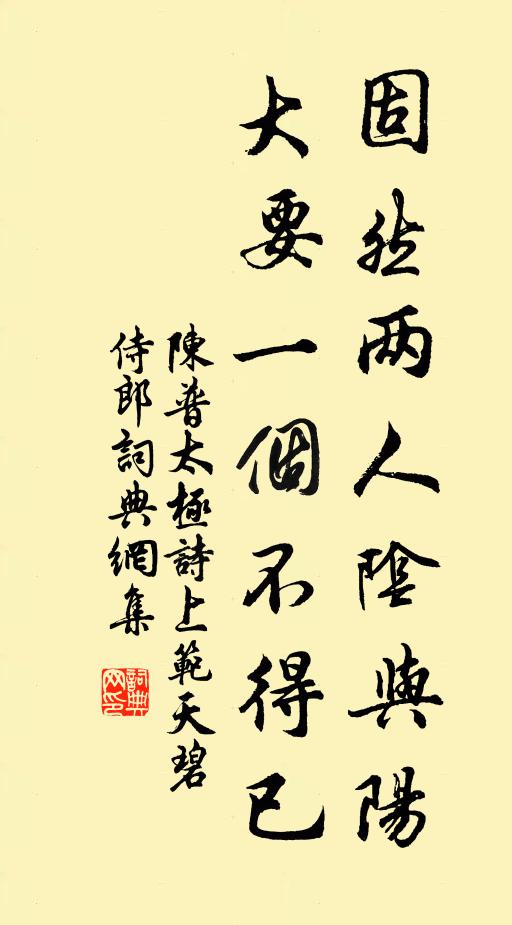 固然两人陰與陽
大要一個不得已
陳普太極詩上範天碧
侍郎詞典網集
詞典网印